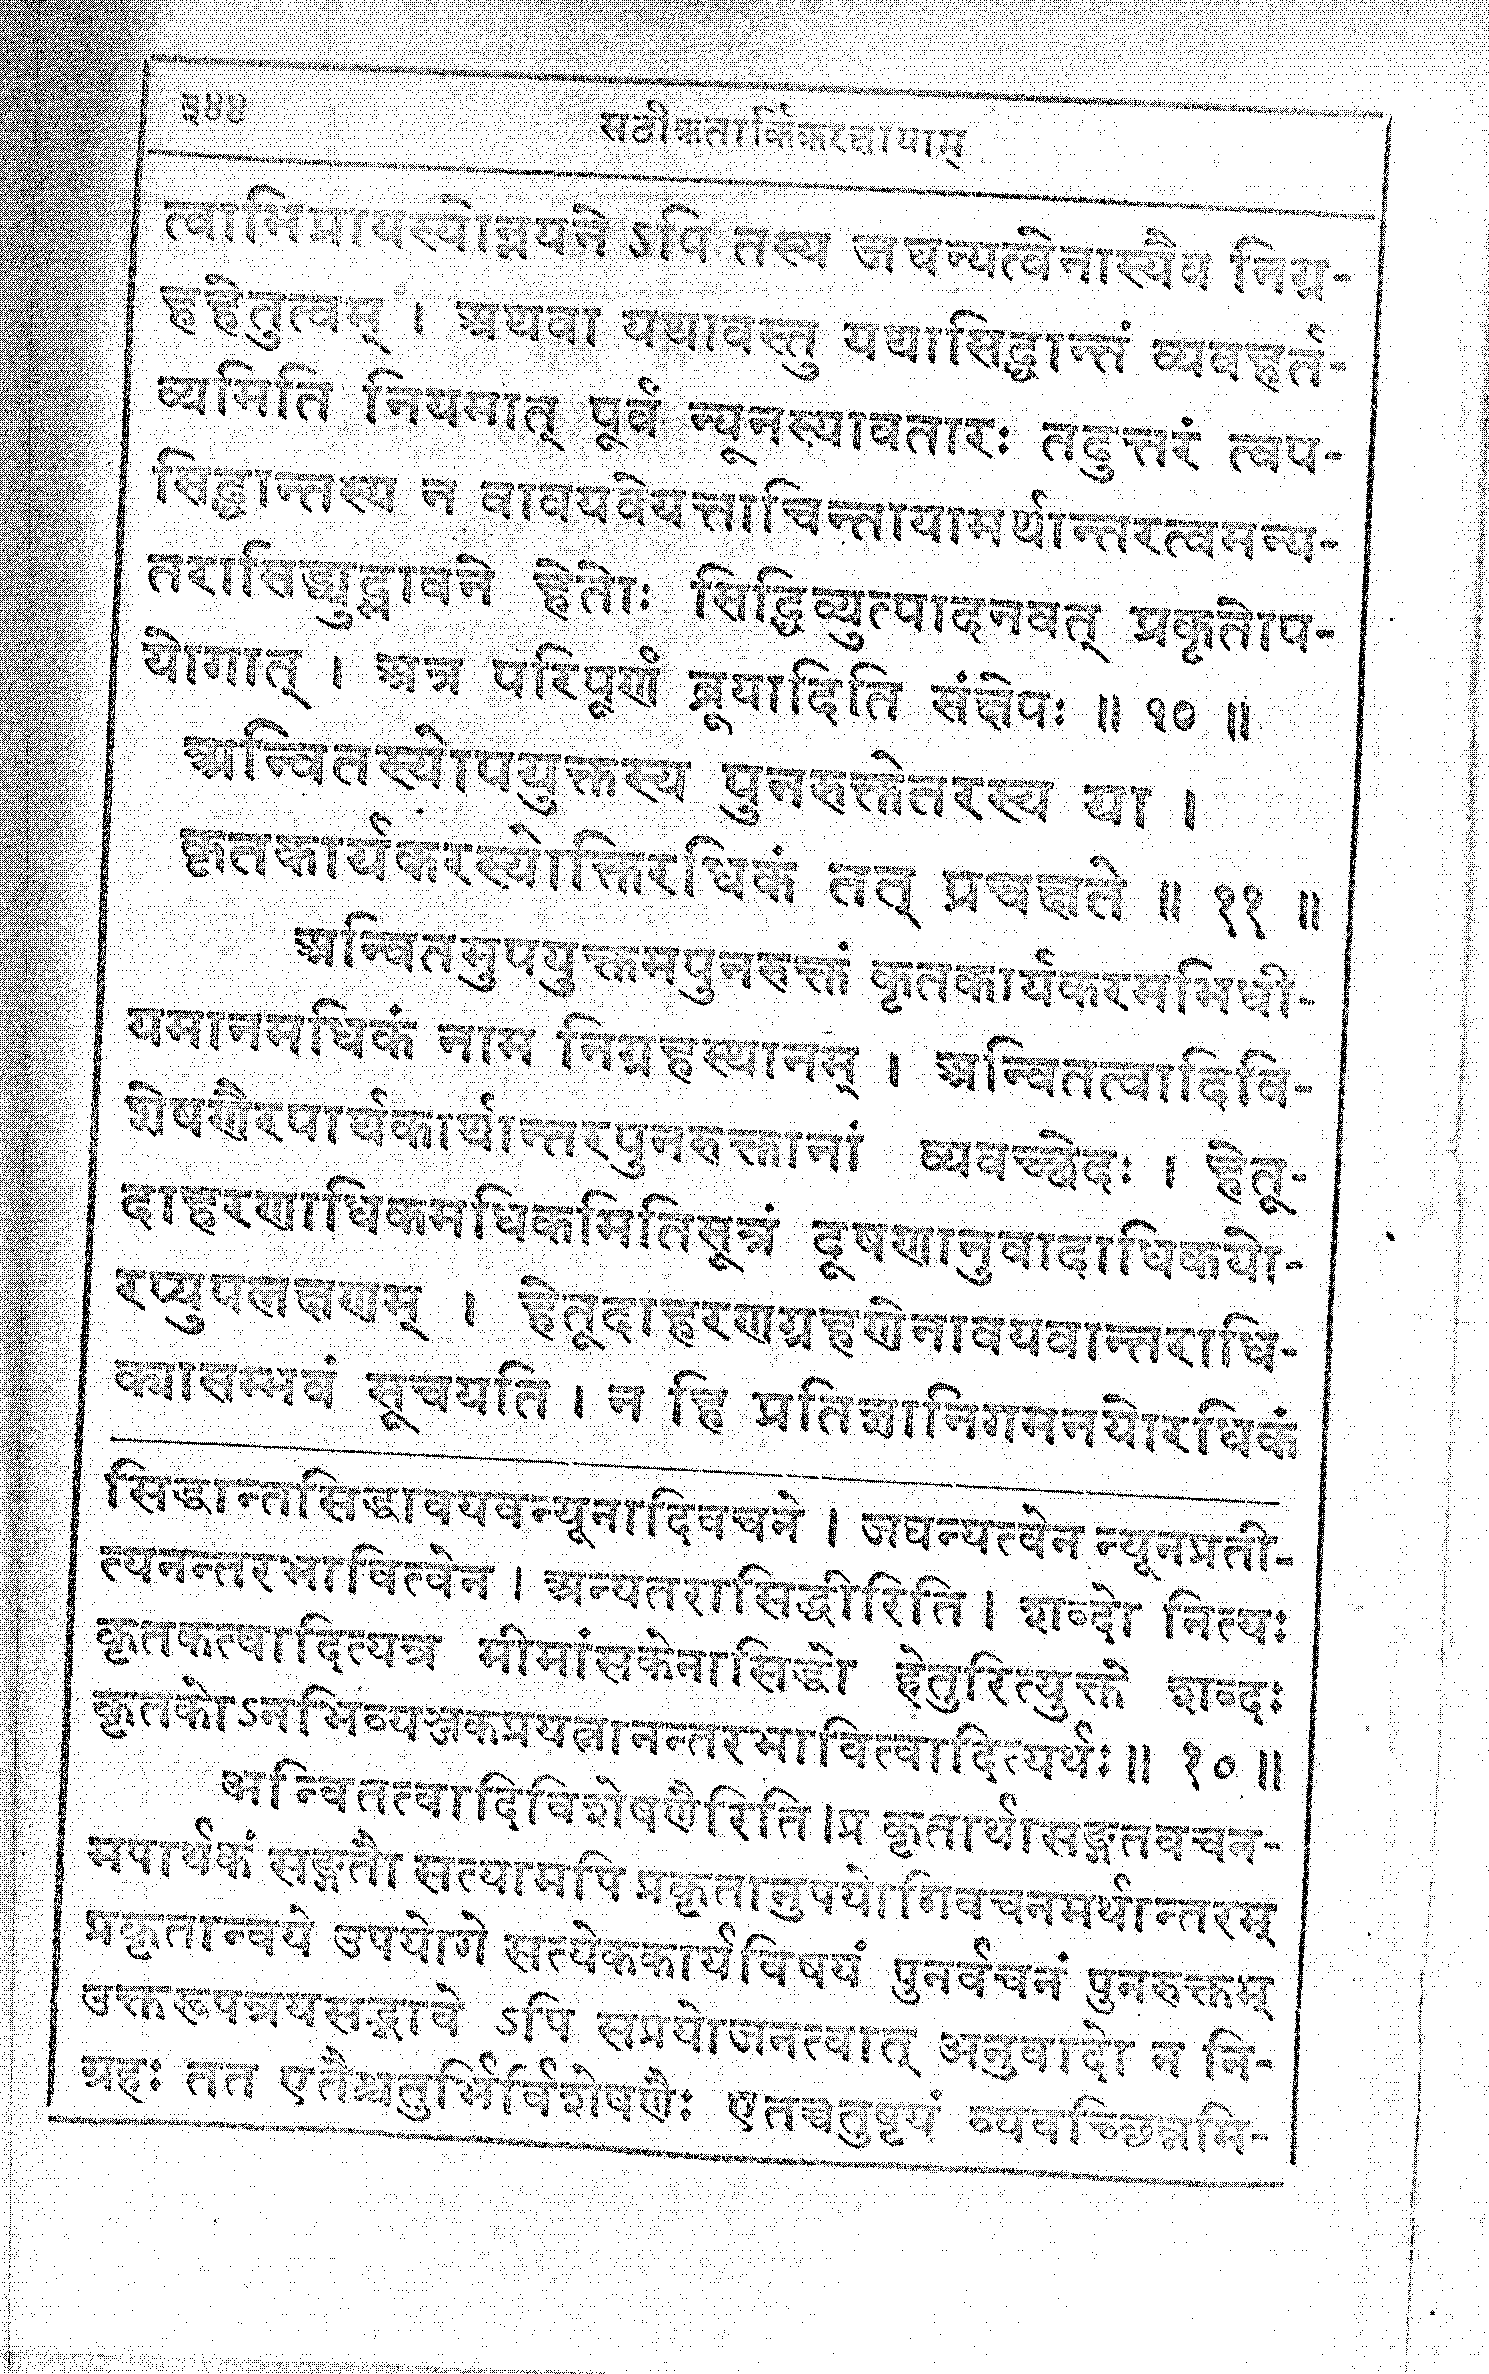 ३४०
सटीकतार्किकरक्षायाम्
त्वाभिप्रायस्योन्नयने ऽपि तस्य जघन्यत्वेनास्यैव निग्र-
हहेतुत्वम् । अथवा यथावस्तु यथासिद्धान्तं व्यवहर्त-
व्यमिति नियमात् पूर्वं न्यूनस्यावतारः तदुत्तरं त्वप-
सिद्धान्तस्य न चावयवेयत्ताचिन्तायामर्थान्तरत्वमन्य-
तरासिद्ध्युद्भावने हेतोः सिद्धिव्युत्पादनवत् प्रकृतोप-
योगात् । अत्र परिपूर्णं ब्रूयादिति संक्षेपः ॥ १० ॥
अन्वितस्योपयुक्तस्य पुनरुक्तेतरस्य या ।
कृतकार्यकरस्योक्तिरधिकं तत् प्रचक्षते ॥ ११ ॥
अन्वितमुपयुक्तमपुनरुक्तं कृतकार्यकरमभिधी-
यमानमधिकं नाम निग्रहस्थानम् । अन्वितत्वादिवि-
शेषणैरपार्थकार्थान्तरपुनरुक्तानां व्यवच्छेदः । हेतू-
दाहरणाधिकमधिकमितिसूत्रं दूषणानुवादाधिकयो-
रप्युपलक्षणम् । हेतूदाहरणग्रहणेनावयवान्तराधि-
क्यासम्भवं सूचयति । न हि प्रतिज्ञानिगमनयोरधिकं
सिद्धान्तसिद्धावयवन्यूनादिवचने । जघन्यत्वेन न्यूनप्रती-
त्यनन्तरभावित्वेन । अन्यतरासिद्धीरिति । शब्दो नित्यः
कृतकत्वादित्यत्र मीमांसकेनासिद्धो हेतुरित्युक्ते शब्दः
कृतकोऽनभिव्यञ्जकप्रयत्नानन्तरभावित्वादित्यर्थः॥ १० ॥
अन्वितत्वादिविशेषणैरिति।प्र कृतार्थासङ्गतवचन-
मपार्थकं सङ्गतौ सत्यामपि प्रकृतानुपयोगिवचनमर्थान्तरम्
प्रकृतान्वये उपयोगे सत्येककार्यविषयं पुनर्वचनं पुनरुक्तम्
उक्तरूपत्रयसद्भावे ऽपि सप्रयोजनत्वात् अनुवादो न नि-
ग्रहः तत एतैश्चतुर्भिर्विशेषणैः एतच्चतुष्टयं व्यवच्छिन्नमि-